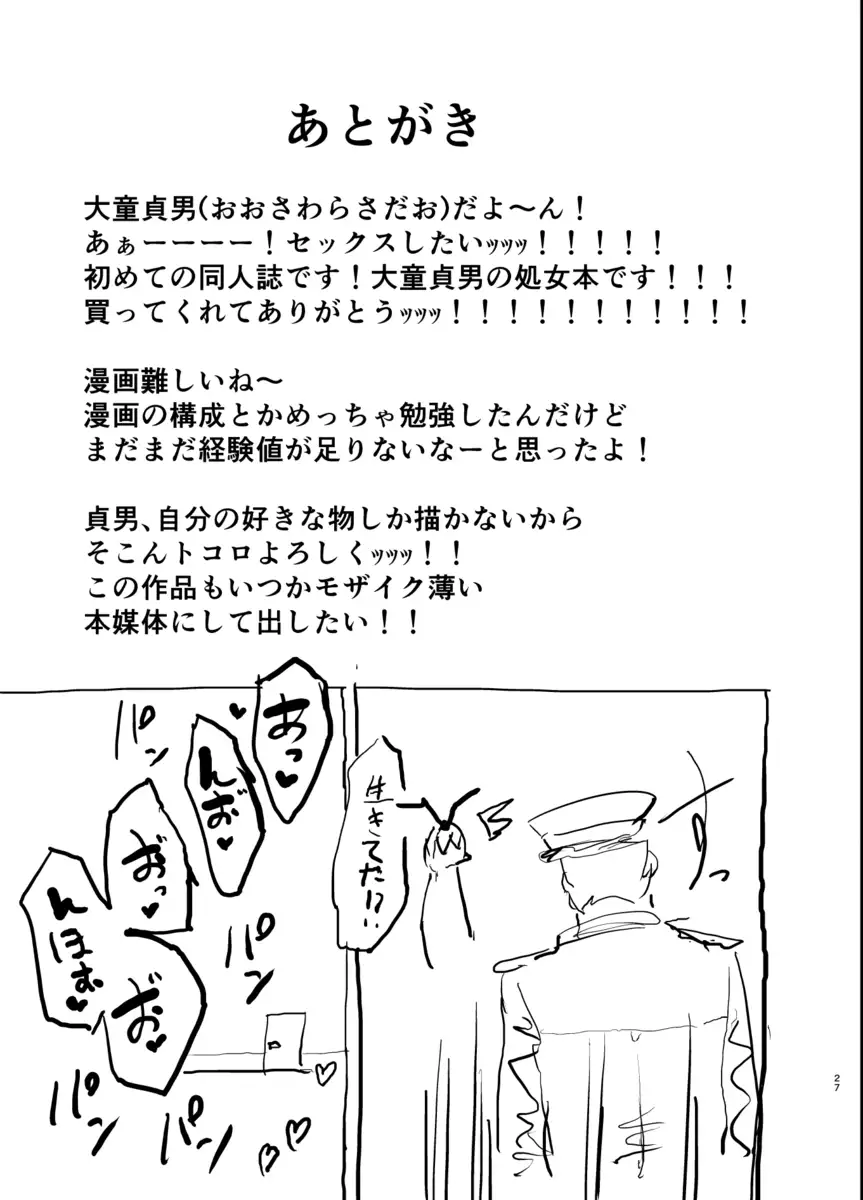 あとがき
大童貞男(おおさわらさだお)だよ～ん！
あぁーーーー！セックスしたいｯｯｯ！！！！！
初めての同人誌です！大童貞男の処女本です！！！
買ってくれてありがとうｯｯｯ！！！！！！！！！！！
漫画難しいね～
漫画の構成とかめっちゃ勉強したんだけど
まだまだ経験値が足りないなーと思ったよ！
貞男、自分の好きな物しか描かないから
そこんトコロよろしくｯｯｯ！！
この作品もいつかモザイク薄い
本媒体にして出したい！！
スッ
生きてた!?
あっ♥
んお♥
おっ♥
んほぉ♥
お♥
パン
パン
パン
パン
27